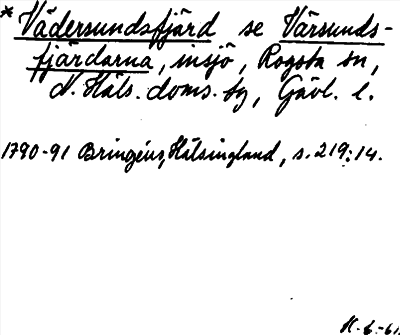 * Vädersundsfjärd se Värsunds-
fjärdarna, insjö, Rogsta sn,
N. Häls. doms. bg, Gävl. l.
1790-91 Bringéus, Hälsingland, s. 219:14.
H. 6. -61.